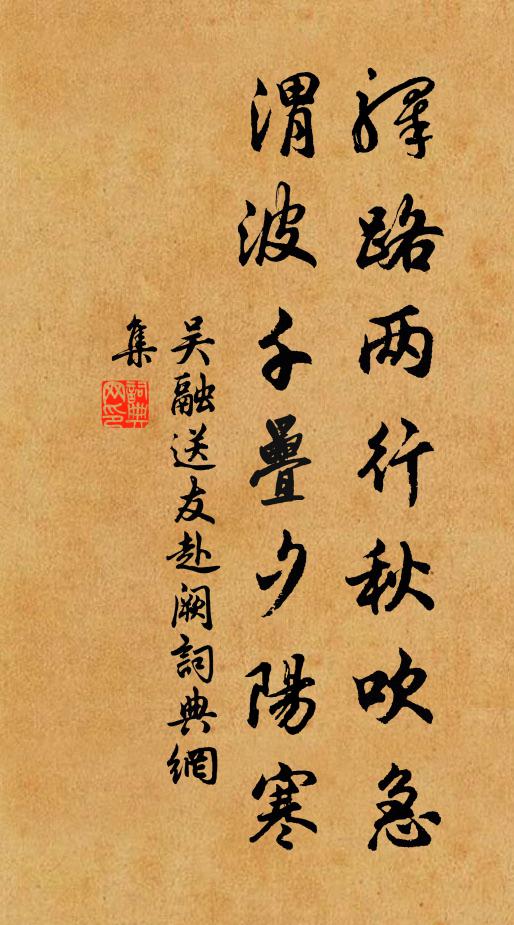 驛路两行秋吹急
渭波千疊夕陽寒
吴融送友赴闕詞典網
集
詞典
网印